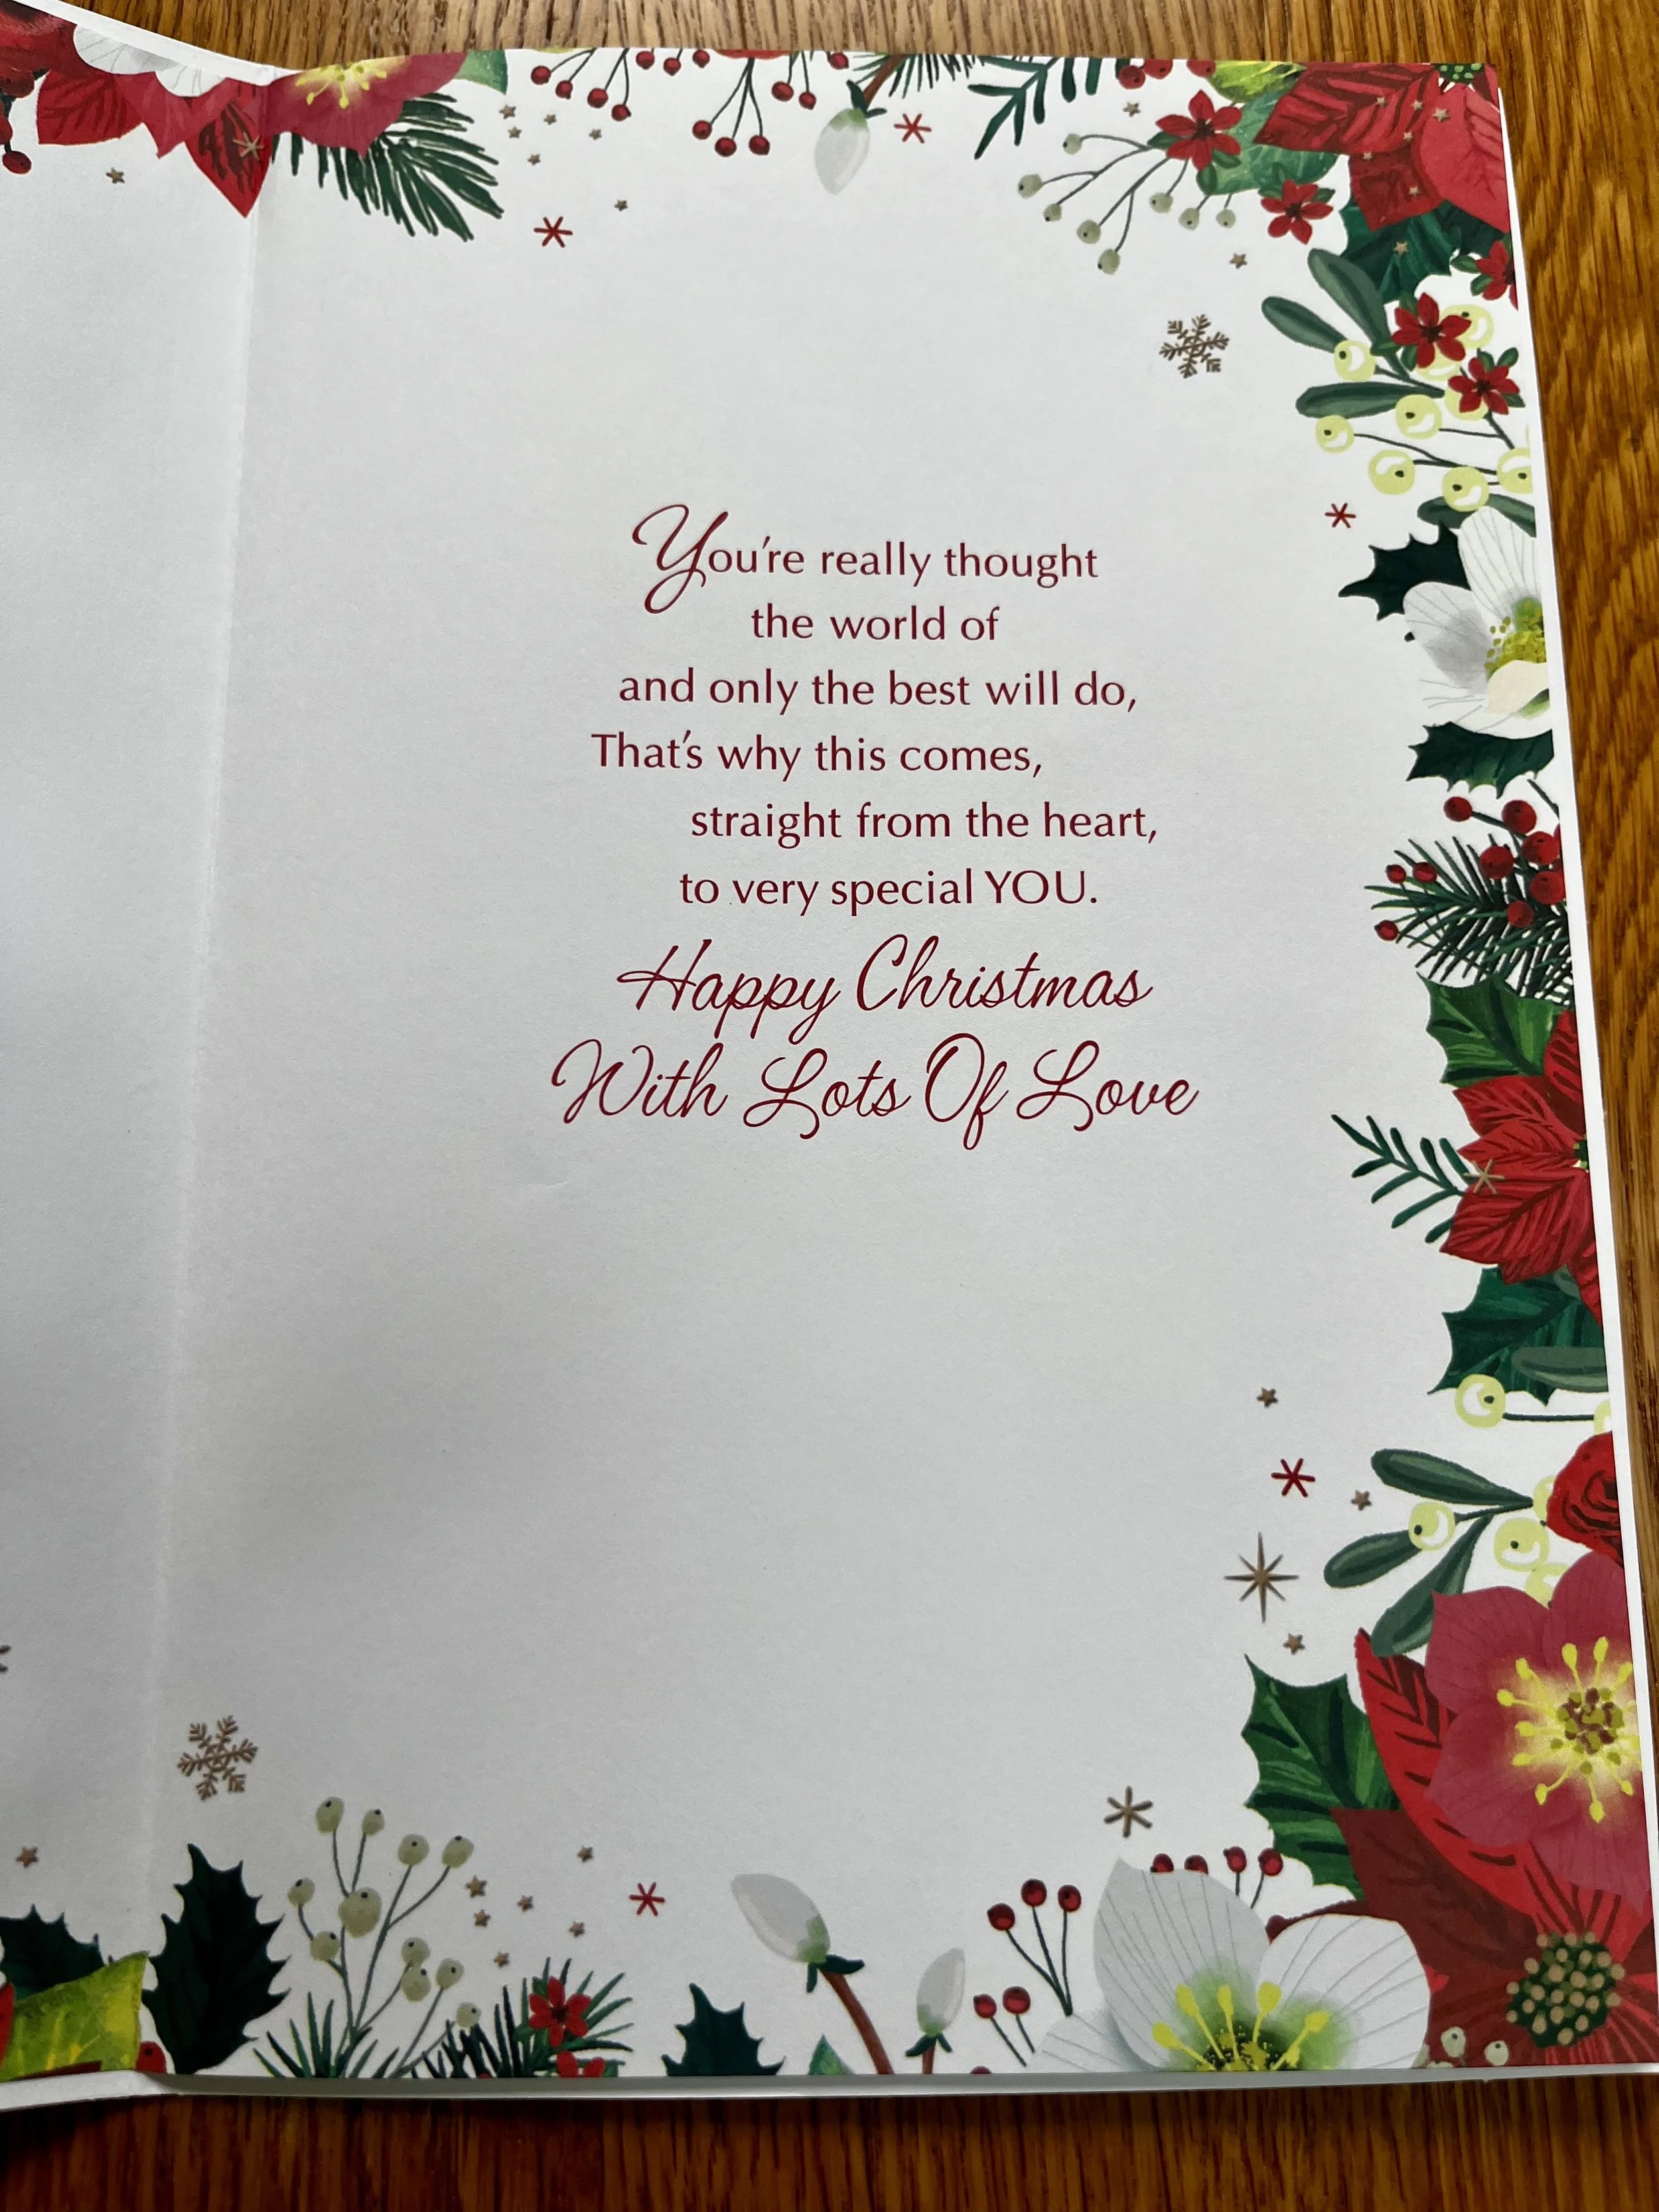 You're really thought
the world of
and only the best will do,
That's why this comes,
straight from the heart,
to very special YOU.
Happy Christmas
With Lots Of Love